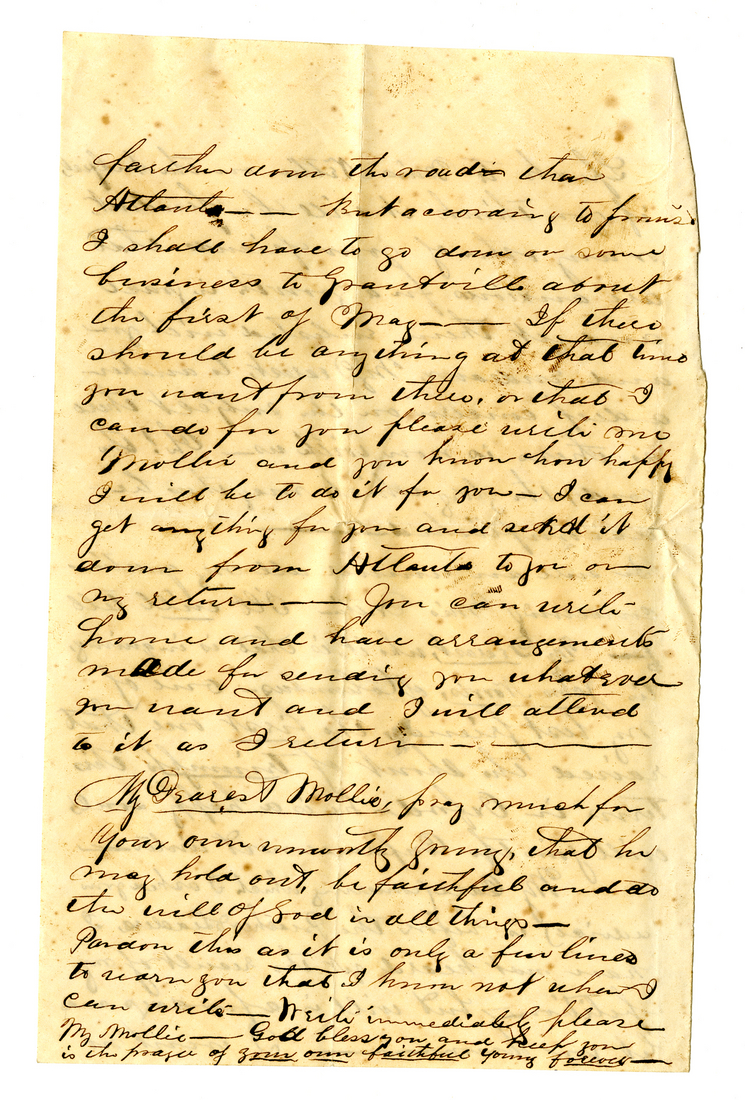 farther down the roads than
Atlanta — — But according to promise
I shall have to go down on some
business to Grantville about
the first of May — — If there
should be anything at that time
you want from there, or that I
can do for you please write me
Mollie and you know how happy
I will be to do it for you — I can
get anything for you and send it
down from Atlanta to you on
my return — — You can write
home and have arrangements
made for sending you whatever
you want and I will attend
to it as I return — —
My Dearest Mollie, pray much for
your own unworthy Young, that he
may hold out, be faithful and do
the will of God in all things —
Pardon this as it is only a few lines
to warn you that I know not when I
can write — Write immediately please
My Mollie — God bless you and keep you
is the prayer of your own faithful Young forever —